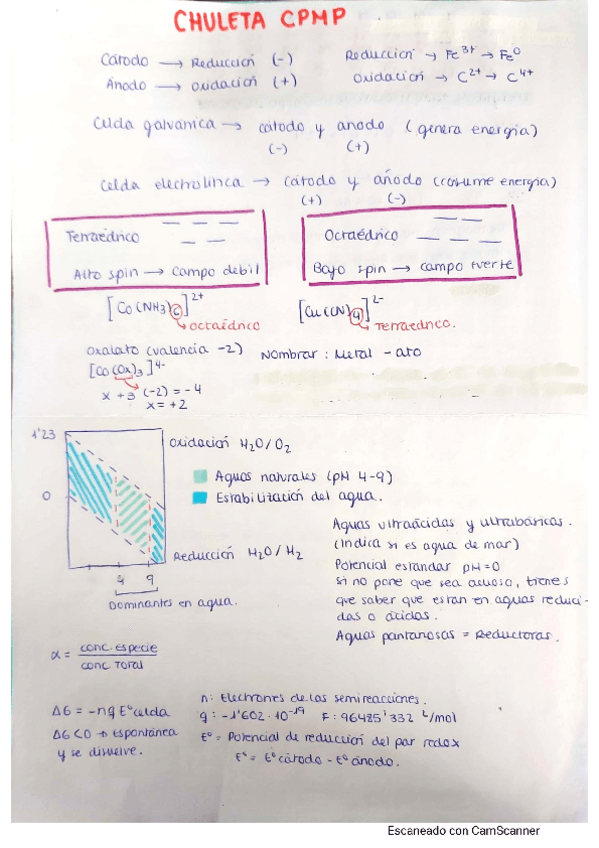 CHULETA CPMP
Cátodo → Reducción (-)
Ánodo → oxidación (+)
Reducción → Fe³⁺ → Fe⁰
Oxidación → C²⁺ → C⁴⁺
Celda galvánica → cátodo y anodo (genera energía)
(-) (+)
Celda electrolítica → cátodo y añodo (consume energía)
(+) (-)
Tetraédrico
Alto spin → campo debil
Octaédrico
Bajo spin → campo fuerte
[Co(NH3)6]²⁺
octaédrico
[Cu(CN)4]²⁻
Tetraédrico.
Oxalato (valencia -2)
[Co(Ox)3]⁴⁻
x + 3 (-2) = -4
x = +2
Nombrar : Metal - ato
1'23
0
4 9
Dominantes en agua.
Oxidación H2O/O2
Aguas naturales (pH 4-9)
Estabilización del agua.
Reducción H2O/H2
Aguas ultraácidas y ultrabásicas.
(Indica si es agua de mar)
Potencial estandar pH=0
si no pone que sea acuoso, tienes
que saber que estan en aguas reduci-
das o ácidas.
Aguas pantanosas = Reductoras.
α = conc. especie
conc Total
ΔG = -nq E°celda
ΔG<0 → Espontánea
y se disuelve.
n: Electrones de las semireacciones.
q: -1'602·10⁻¹⁹ F: 96485'332 C/mol
E° = Potencial de reducción del par redox
E° = E° cátodo - E° ánodo.
Escaneado con CamScanner